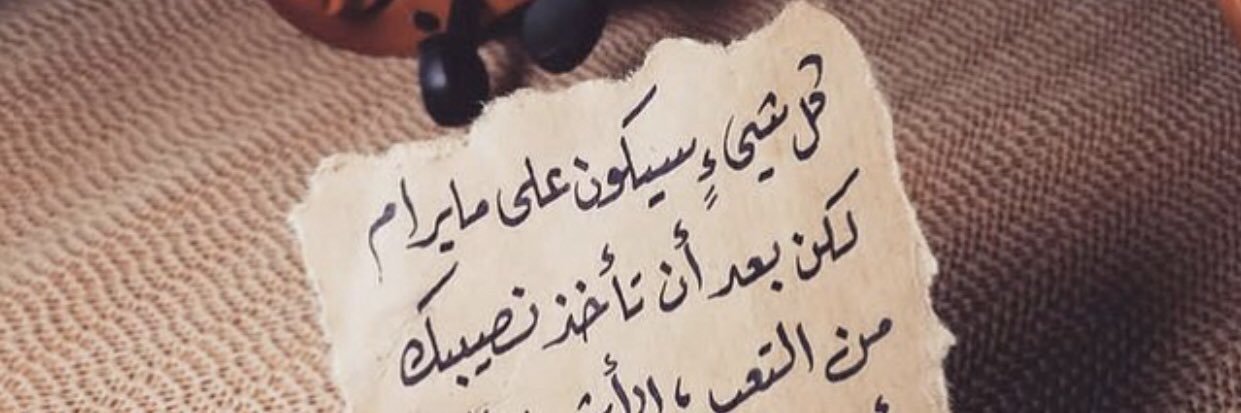 كل شيءٍ سيكون على مايرام
لكن بعد أن تأخذ نصيبك
من التعب ،